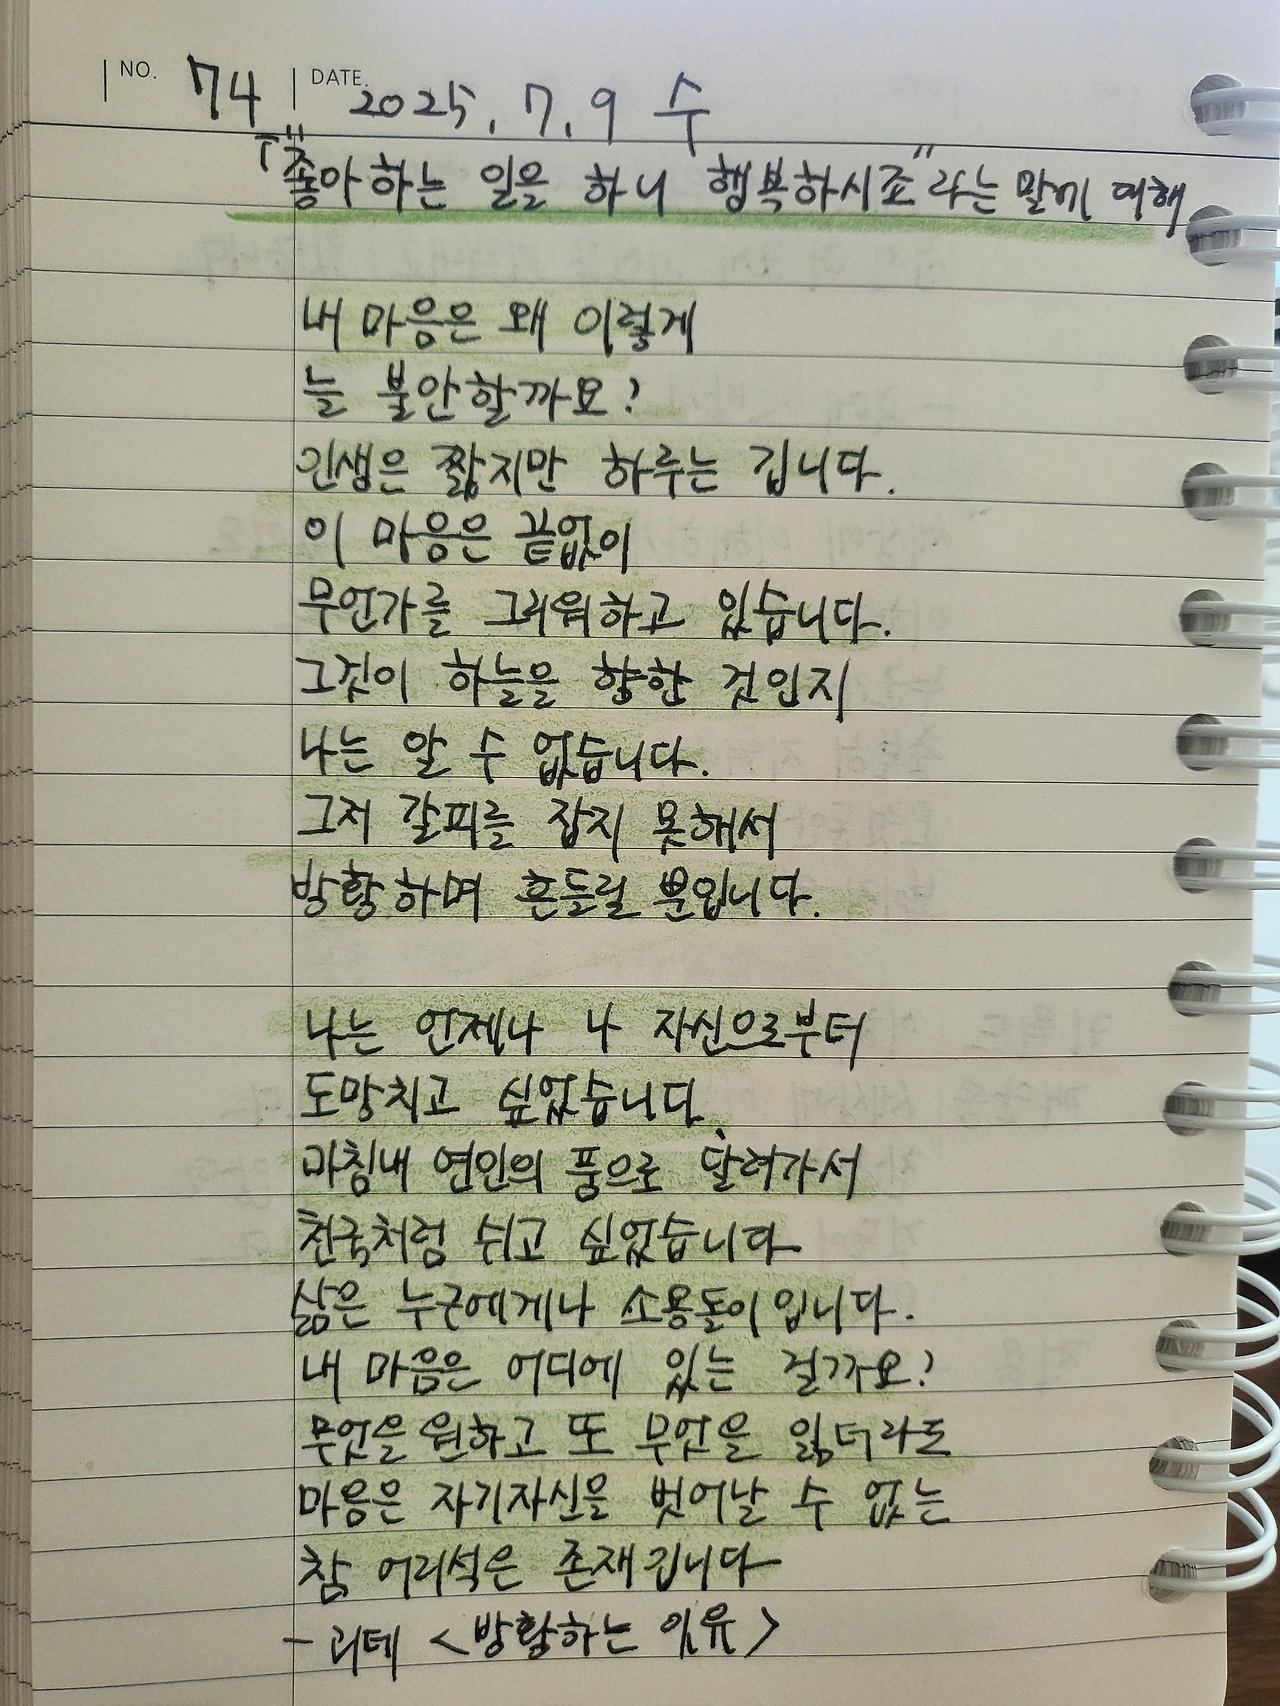 NO. 74 DATE. 2025. 7. 9 수
"좋아하는 일을 하니 행복하시죠"라는 말에 대해
내 마음은 왜 이렇게
늘 불안할까요?
인생은 짧지만 하루는 깁니다.
이 마음은 끝없이
무언가를 그리워하고 있습니다.
그것이 하늘을 향한 것인지
나는 알 수 없습니다.
그저 갈피를 잡지 못해서
방황하며 흔들릴 뿐입니다.
나는 언제나 나 자신으로부터
도망치고 싶었습니다.
마침내 연인의 품으로 달려가서
천국처럼 쉬고 싶었습니다
삶은 누군에게나 소용돌이입니다.
내 마음은 어디에 있는 걸까요?
무엇을 원하고 또 무엇을 잃더라도
마음은 자기자신을 벗어날 수 없는
참 어리석은 존재입니다
- 괴테 <방황하는 이유>